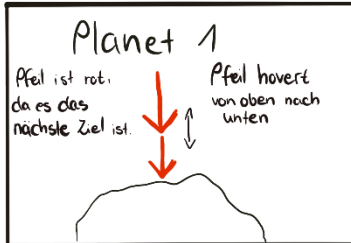 Planet 1
Pfeil ist rot,
da es das
nächste Ziel ist.
Pfeil hovert
von oben nach
unten